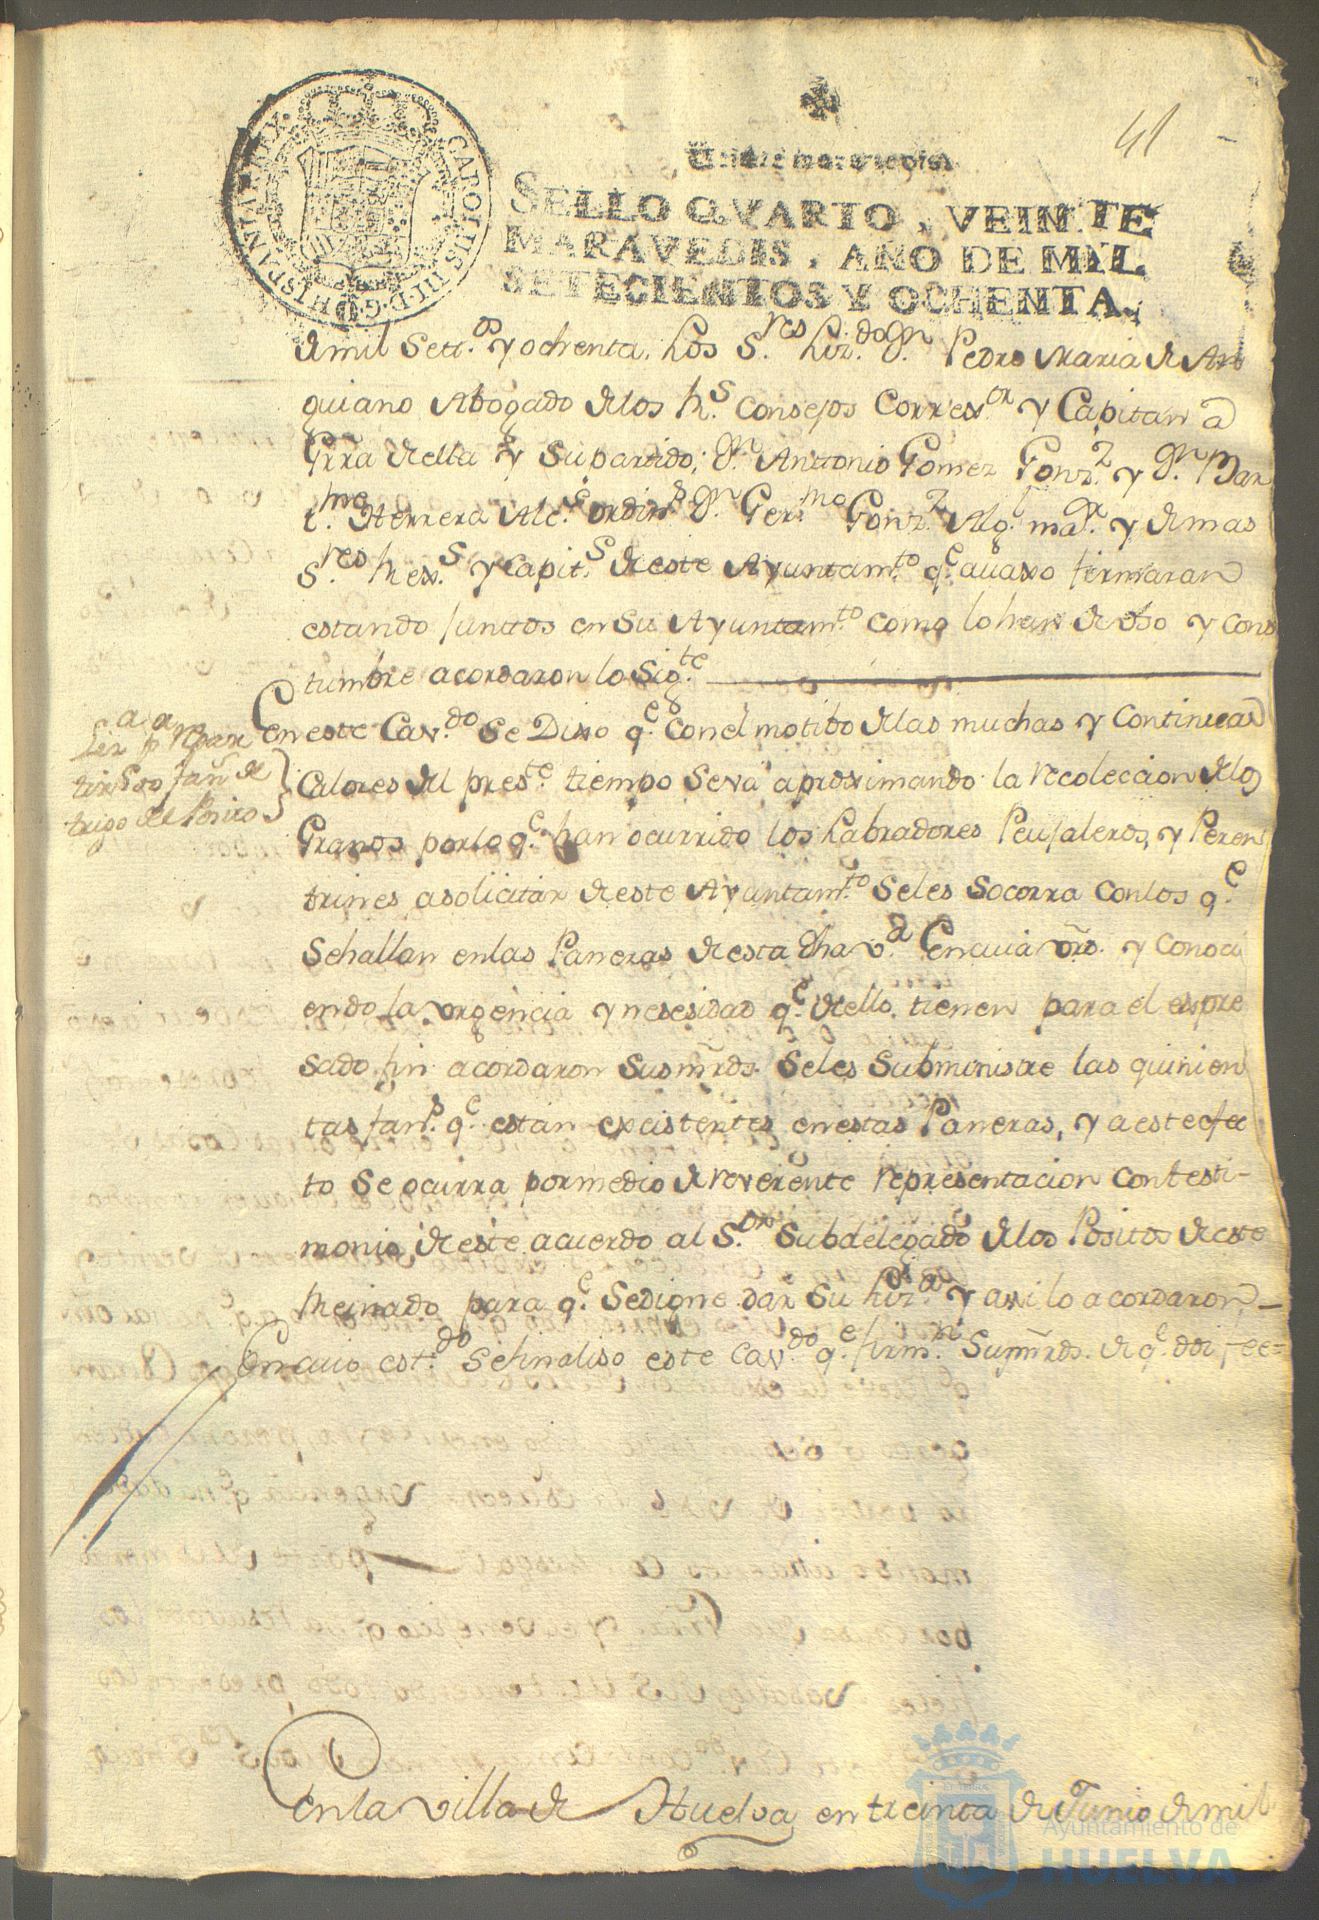 41
CAROLUS III D G HISPANIAR REX
Veinte maravedis
SELLO QVARTO, VEINTE
MARAVEDIS, AÑO DE MIL
SETECIENTOS Y OCHENTA.
de mil Sett.os y ochenta, los S.res Liz.do Dn. Pedro Maria de An
guiano Abogado de los Rs. Consejos Correx.or y Capitan a
Grra de ella y su partido; Dn. Anttonio Gomez Gonz.z y Dn. Bar
t.me Herrera Alc.es ordin.s Dn. Ger.mo Gonz.z Alg.l ma.r y demas
S.res Rex.s y Capit.s de este Ayuntam.to q.e avaxo firmaran
estando junttos en su Ayuntam.to como lo han de Uso y Cons
tumbre acordaron lo Sig.te
En este Cav.do Se Dixo q.e con el motibo de las muchas y continuas
Calores del pres.te tiempo se va aproximando la recoleccion de los
Granos por lo q.e han ocurrido los Labradores Peujaleros, y Peren
trines a solicitar de este Ayuntam.to Seles Socorra con los q.e
Se hallan en las Paneras de esta dha v.a En cuia vrd. y conoci
endo la urgencia y nesesidad q.e de ello tienen para el espre
sado fin acordaron sus mrds. Seles Subministre las quinien
tas fan.s q.e estan existentes en estas Paneras, y a este efec
to se ocirra por medio de reverente representacion con testi-
monio de este acuerdo al S.or Subdelegado de los Positos de este
Reinado para q.e Se digne dar su liz.a y assi lo acordaron,
En cuio est.do se finaliso este Cav.do q.e firm.n Sus mrds. de q.e doi fee=
Liz.a p.a repar
tir 500 fan.s de
trigo del Posito
En la villa de Huelva en treinta de Junio de mil
Ayuntamiento de
HUELVA